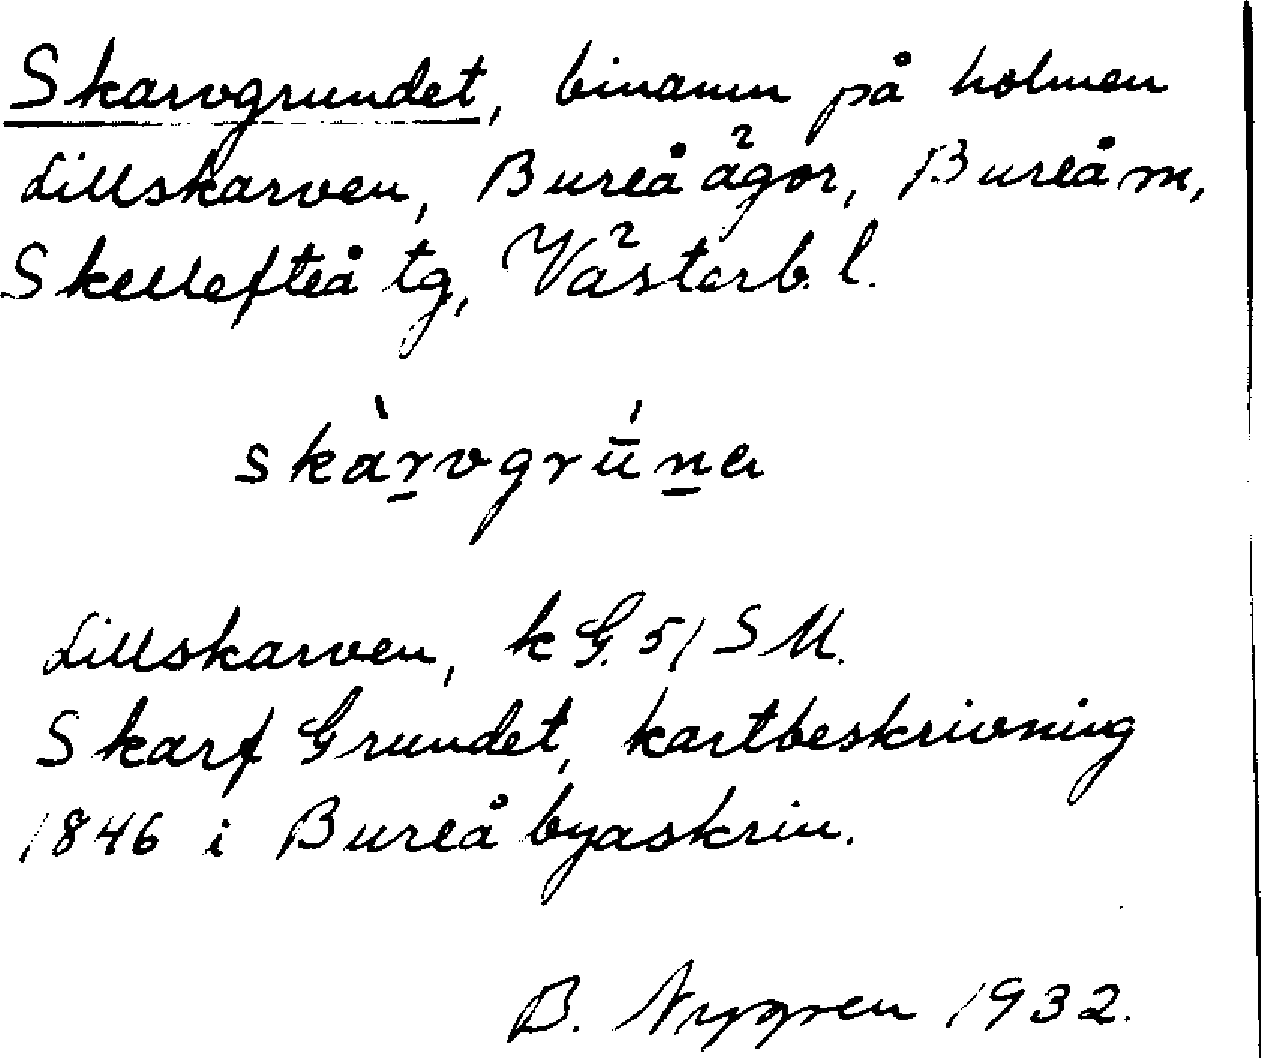 Skarvgrundet, binamn på holmen
Lillskarven, Bureå ägor, Bureå m,
Skellefteå tg, Västerb. l.
skàrvgrū́na
Lillskarven, k G. 51 S M.
Skarf Grundet, kartbeskrivning
1846 i Bureå byaskrin.
B. Nygren 1932.